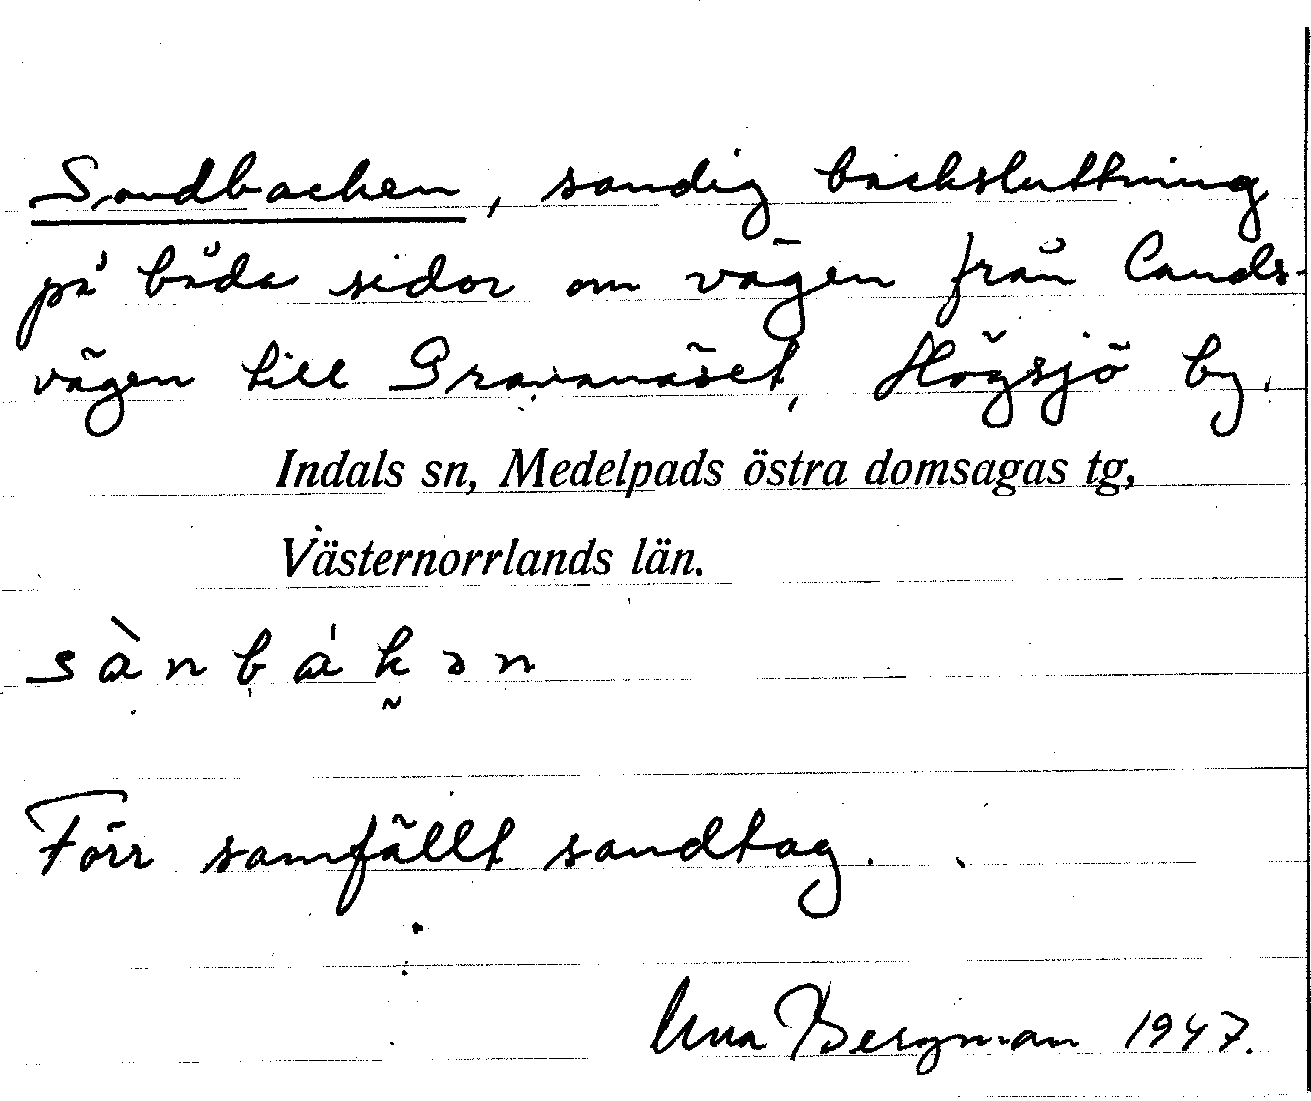 Sandbacken, sandig backsluttning
på båda sidor om vägen från lands-
vägen till Gravanäset, Högsjö by.
Indals sn, Medelpads östra domsagas tg,
Västernorrlands län.
sànbákən
Förr samfällt sandtag.
Bergman 1947.